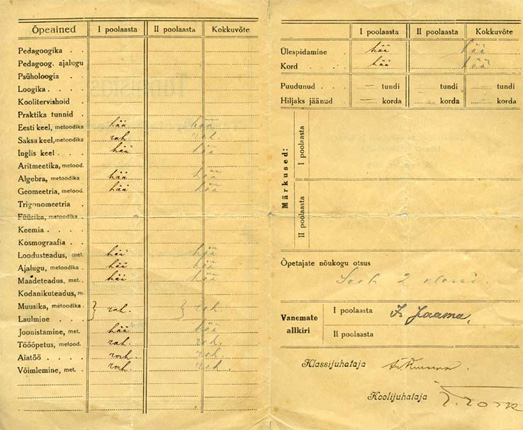 Õpeained I poolaasta II poolaasta Kokkuvõte
Pedagoogika
Pedagoog. ajalugu
Psühologia
Loogika
Koolitervishoid
Praktika tunnid
Eesti keel, metoodika hää hää
Saksa keel, metoodika rah. rah.
Inglis keel hää hää
Aritmeetika, metood.
Algebra, metoodika hää hää
Geomeetria, metood. hää hää
Trigonomeetria
Füüsika, metoodika
Keemia
Kosmograafia
Loodusteadus, met. hää hää
Ajalugu, metoodika hää hää
Maadeteadus, met. hää hää
Kodanikuteadus, m.
Muusika, metoodika
Laulmine } rah. } rah.
Joonistamine, met. hää hää
Tööõpetus, metood. rah. rah.
Aiatöö rah. rah.
Võimlemine, met. rah. rah.
I poolaasta II poolaasta Kokkuvõte
Ülespidamine hää hää
Kord hää hää
Puudunud — tundi — tundi
Hiljaks jäänud — korda — korda
Märkused:
I poolaasta
II poolaasta
Õpetajate nõukogu otsus
2
Vanemate allkiri
I poolaasta J. Jaama,
II poolaasta
Klassijuhataja
Koolijuhataja